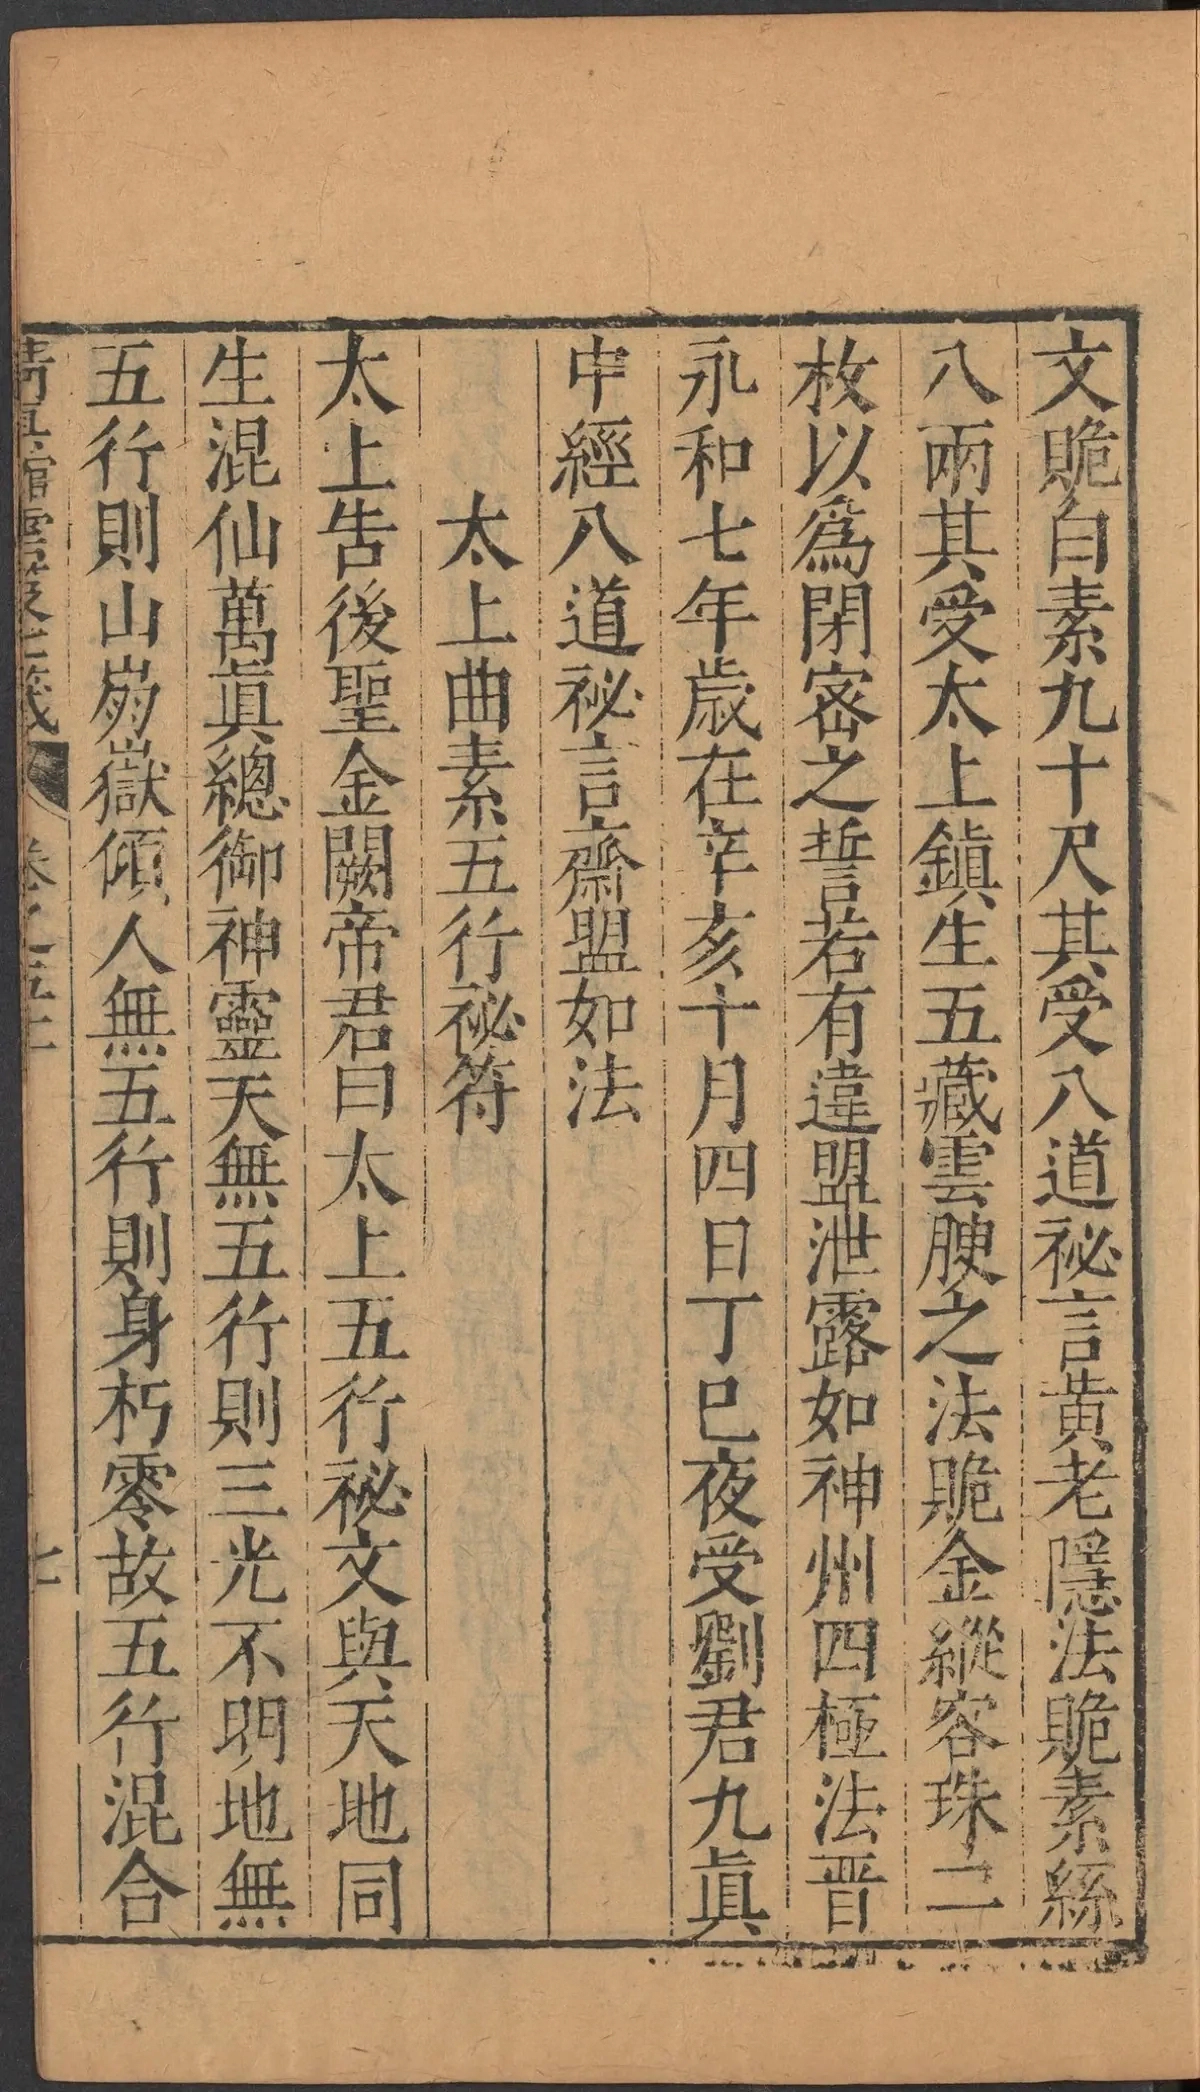 文䞈白素九十尺其受八道祕言黄老隱法䞈素絲
八兩其受太上鎮生五藏雲腴之法䞈金縱容珠二
枚以爲閉密之誓若有違盟泄露如神州四極法晋
永和七年歲在辛亥十月四日丁巳夜受劉君九眞
中經八道祕言齋盟如法
太上曲素五行祕符
太上告後聖金闕帝君曰太上五行祕文與天地同
生混仙萬眞總御神靈天無五行則三光不明地無
五行則山崩嶽傾人無五行則身朽零故五行混合
清眞館雲笈七籤 卷之五十一 七